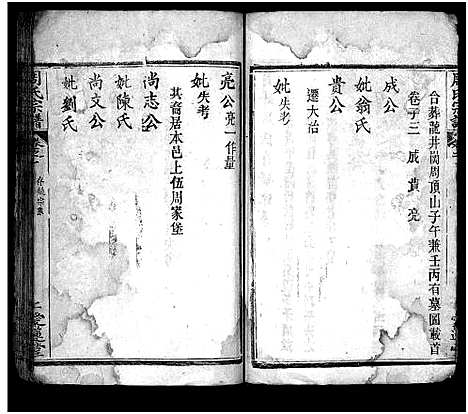 合葬龍井岡周頂山子午兼壬丙有墓圖載首
卷 子三 成 貴 亮
成公
妣翁氏
貴公
遷大冶
妣失考
亮公亮一作量
妣失考
其裔居本邑上伍周家堡
尚志公
妣陳氏
尚文公
妣劉氏
周氏宗譜
愛蓮堂